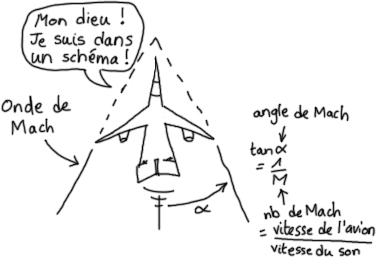 Mon dieu !
Je suis dans
un schéma !
Onde de
Mach
angle de Mach
tanα
= 1/M
α
nb de Mach
= vitesse de l'avion
vitesse du son